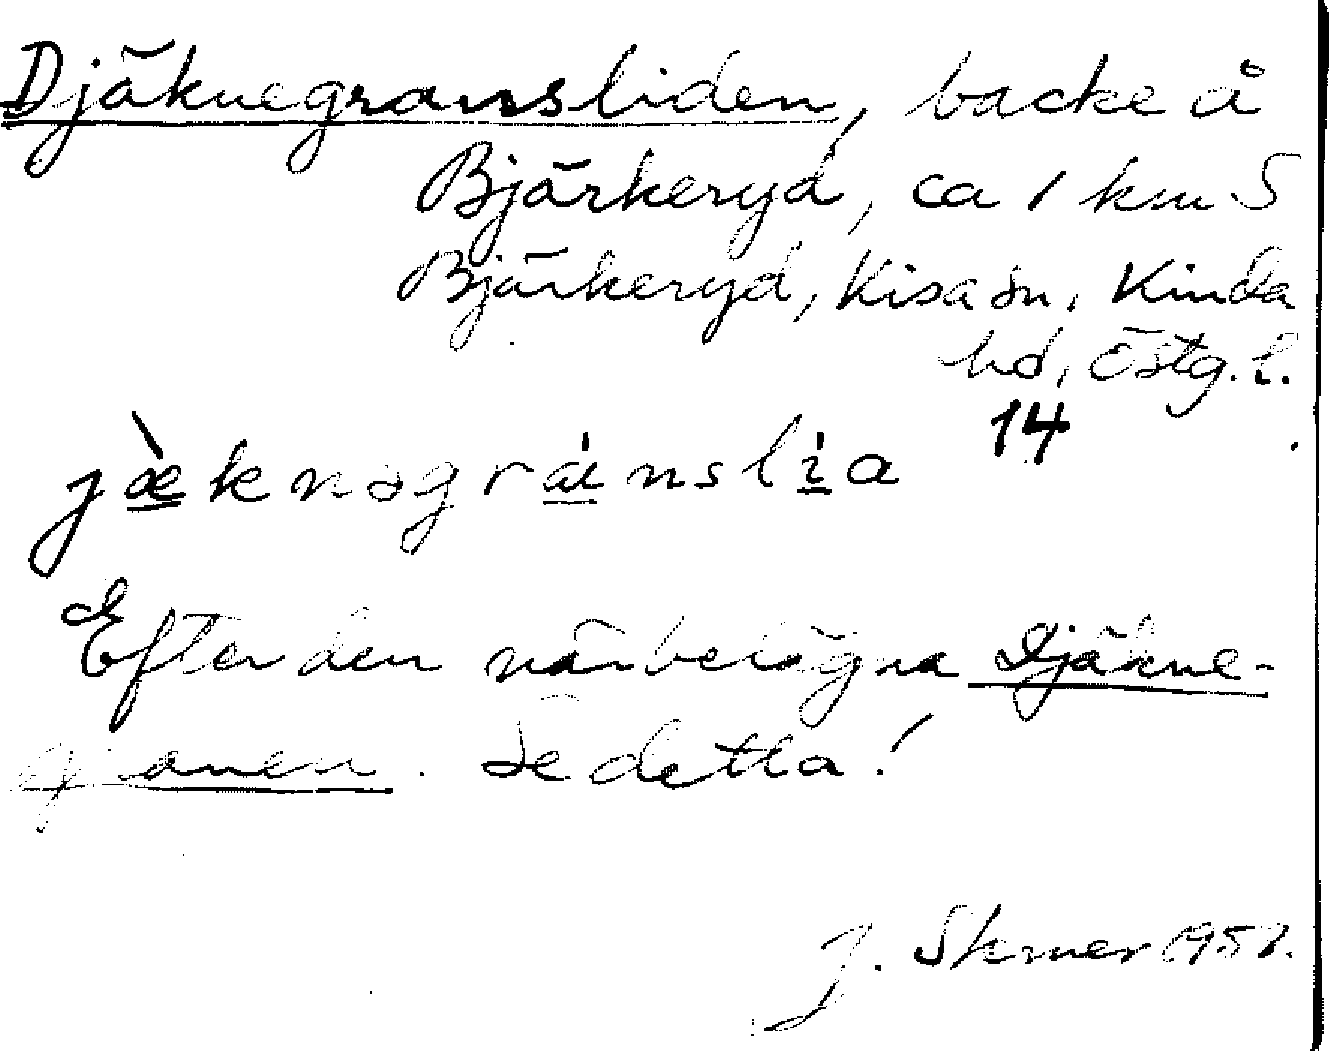 Djäknegransliden, backe å
Bjärkeryd, ca 1 km S
Bjärkeryd, Kisa sn, Kinda
hd, Östg. l.
14
jæ̀knəgránslìa
Efter den närbelägna Djäkne-
granen. Se detta!
J. Skmer 195